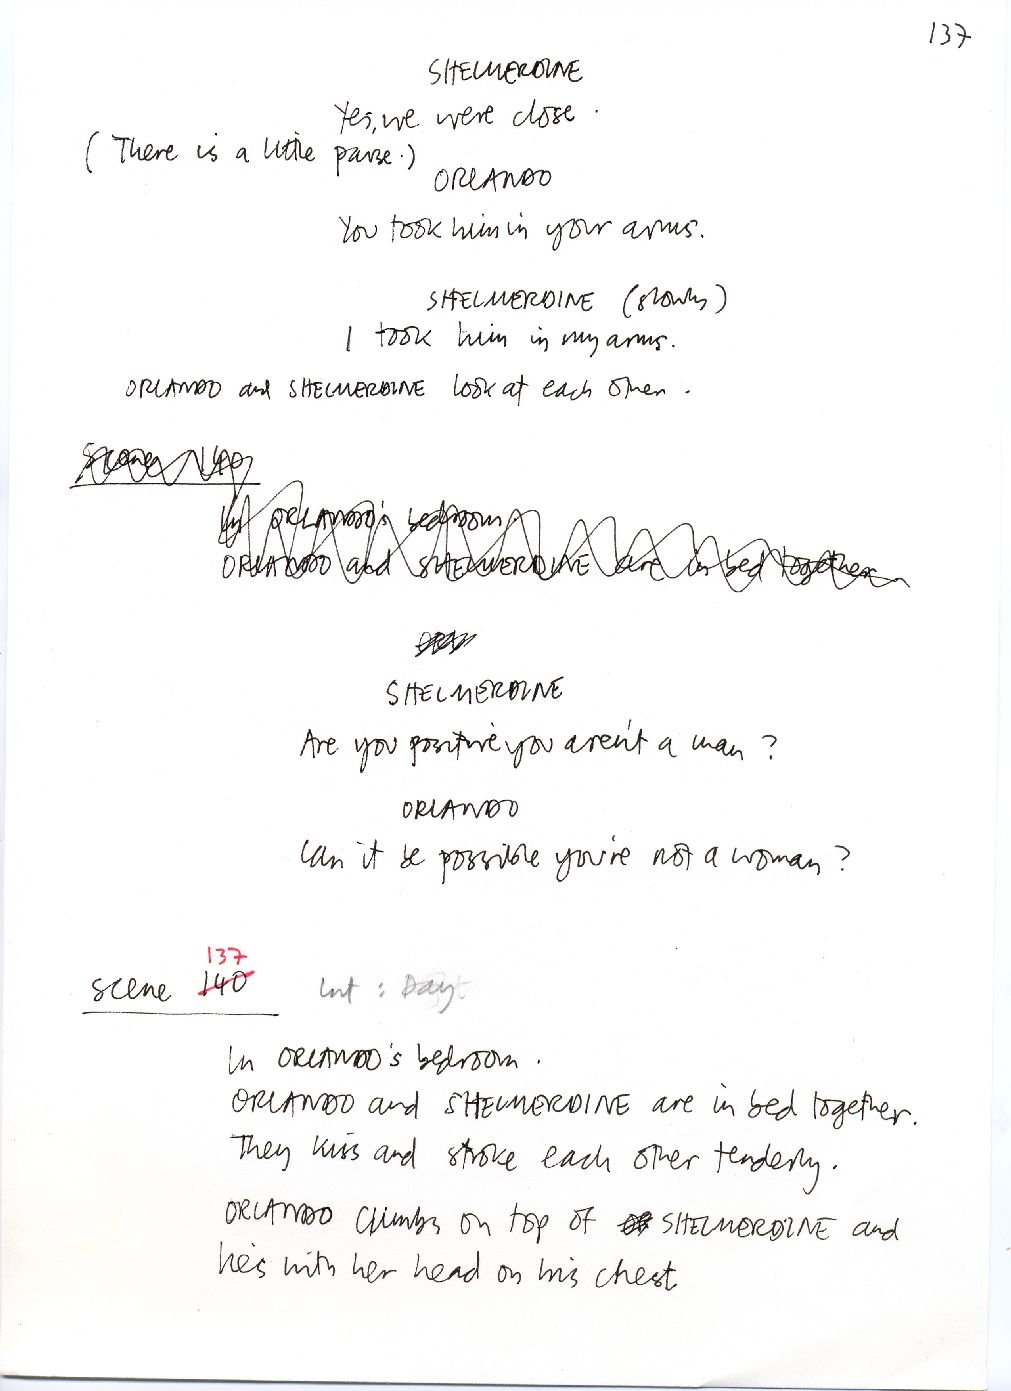 137
SHELMERDINE
Yes, we were close.
(There is a little pause.)
ORLANDO
You took him in your arms.
SHELMERDINE (slowly)
I took him in my arms.
ORLANDO and SHELMERDINE look at each other.
Scene 140
In ORLANDO's bedroom.
ORLANDO and SHELMERDINE are in bed together
SHELMERDINE
Are you positive you aren't a man?
ORLANDO
Can it be possible you're not a woman?
137
Scene 140 Int: Day
In ORLANDO's bedroom.
ORLANDO and SHELMERDINE are in bed together.
They kiss and stroke each other tenderly.
ORLANDO climbs on top of SHELMERDINE and
lies with her head on his chest